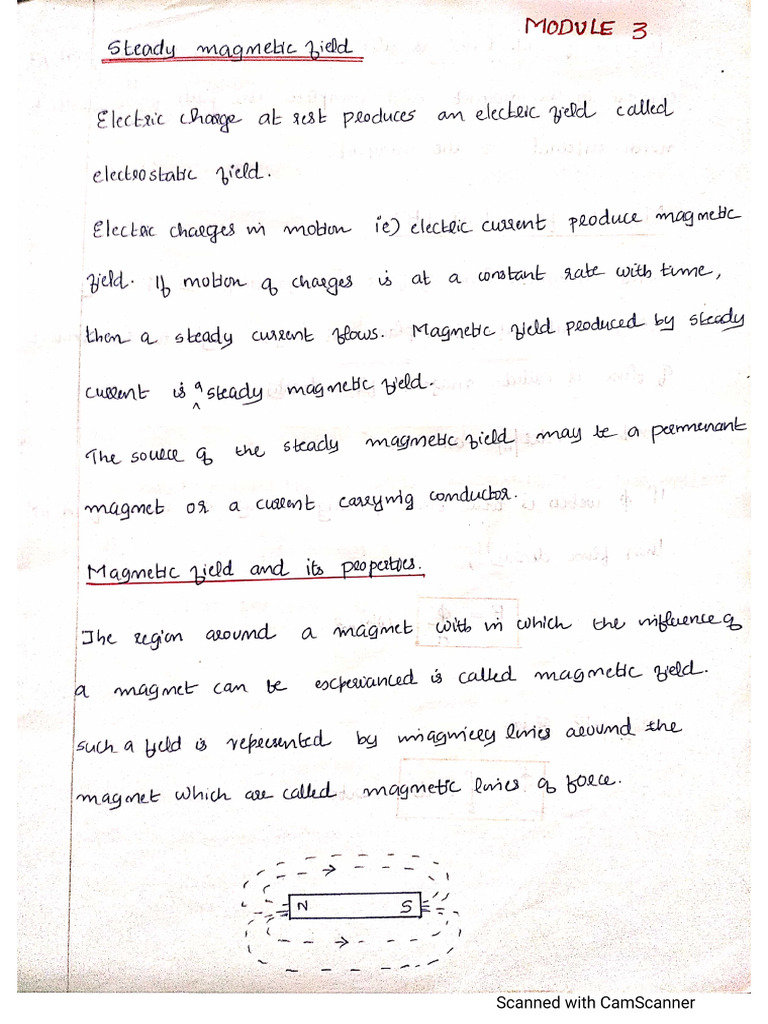 MODULE 3
Steady magnetic field
Electric charge at rest produces an electric field called
electrostatic field.
Electric charges in motion ie) electric current produce magnetic
field. If motion of charges is at a constant rate with time,
then a steady current flows. Magnetic field produced by steady
current is a steady magnetic field.
The source of the steady magnetic field may be a permenant
magnet or a current carrying conductor.
Magnetic field and its properties.
The region around a magnet with in which the influence of
a magnet can be experianced is called magnetic field.
such a field is represented by imaginery lines around the
magnet which are called magnetic lines of force.
N S
Scanned with CamScanner